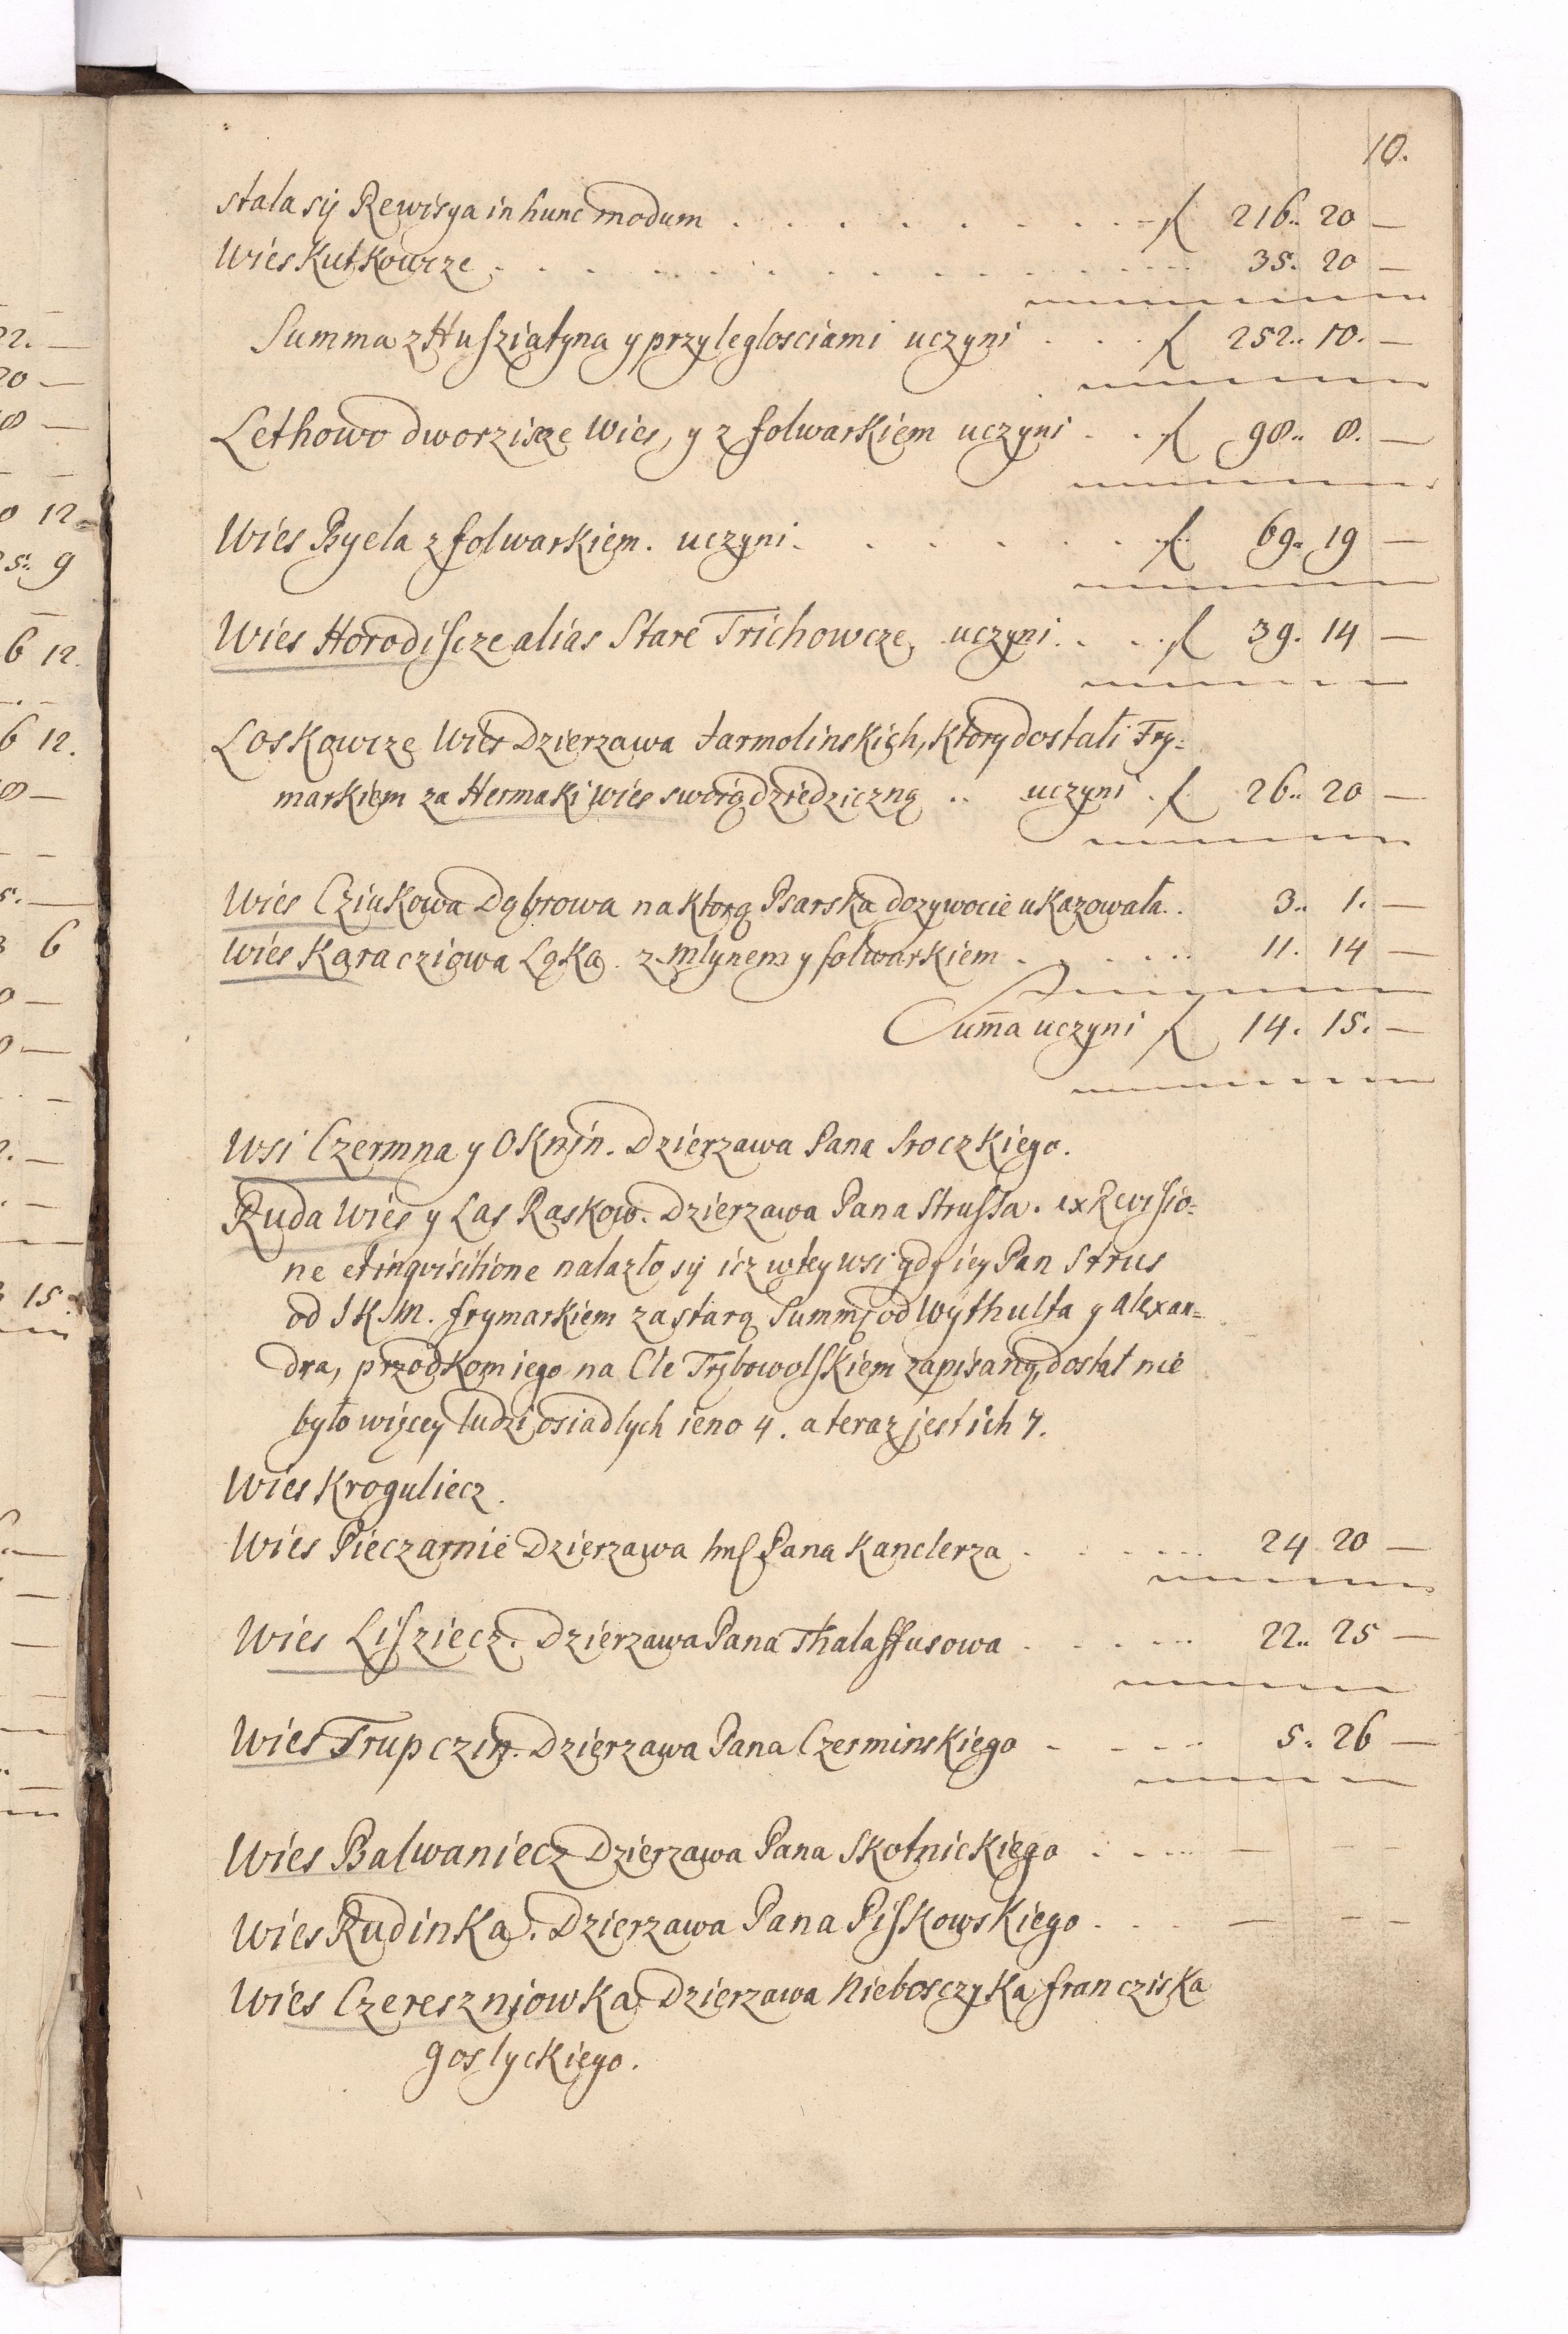 10.
stala się Rewisya in hunc modum . . . . . . . . fl 216.. 20 —
Wies Kutkowcze . . . . . . . . . . . . 35. 20 —
Summa z Husziatyna y przyleglosciami uczyni . . . fl 252.. 10. —
Lethowo dworziscze Wies, y z folwarkiem uczyni . . fl 98.. 8. —
Wies Byela z folwarkiem. uczyni . . . . . . fl 69. 19 —
Wies Horodiscze alias Stare Trichowcze, uczyni . . . fl 39. 14 —
Loskowcze Wies Dzierzawa Jarmolinskich, ktory dostali Fry=
markiem za Hermaki wies swoią dziedziczną .. uczyni . fl 26.. 20 —
Wies Cziukowa Dąbrowa na ktorą Psarska dozywocie ukazowała . . 3.. 1. —
Wies Karacziowa Ląka. z mlynem y folwarkiem . . . . . 11. 14 —
Sum̄a uczyni fl 14. 15. —
Wsi Czermna y Oknin. Dzierzawa Pana Sroczkiego.
Ruda Wies y Las Raskow. Dzierzawa Pana Strussa. ex Revisio=
ne et inqvisitione nalazło się isz w tey wsi gdy iey Pan Strus
od J K M. frymarkiem za starą Summę od Wythulta y Alexan=
dra, przodkom iego na Cle Trębowolskiem zapisaną, dostał nie
było więcey ludzi osiadlych ieno 4. a teraz jest ich 7.
Wies Kroguliecz.
Wies Pieczarnie Dzierzawa Pana Kanclerza . . . . . 24 20 —
Wies Lisziecz. Dzierzawa Pana Thalaffusowa . . . . . 22.. 25 —
Wies Trupczin. Dzierzawa Pana Czerminskiego . . . . 5. 26 —
Wies Balwaniecz Dzierzawa Pana Skotnickiego . . . . — — —
Wies Rudinka. Dzierzawa Pana Piskowskiego . . . . — — —
Wies Czereszniowka Dzierzawa Niebosczyka francziska
goslyckiego.